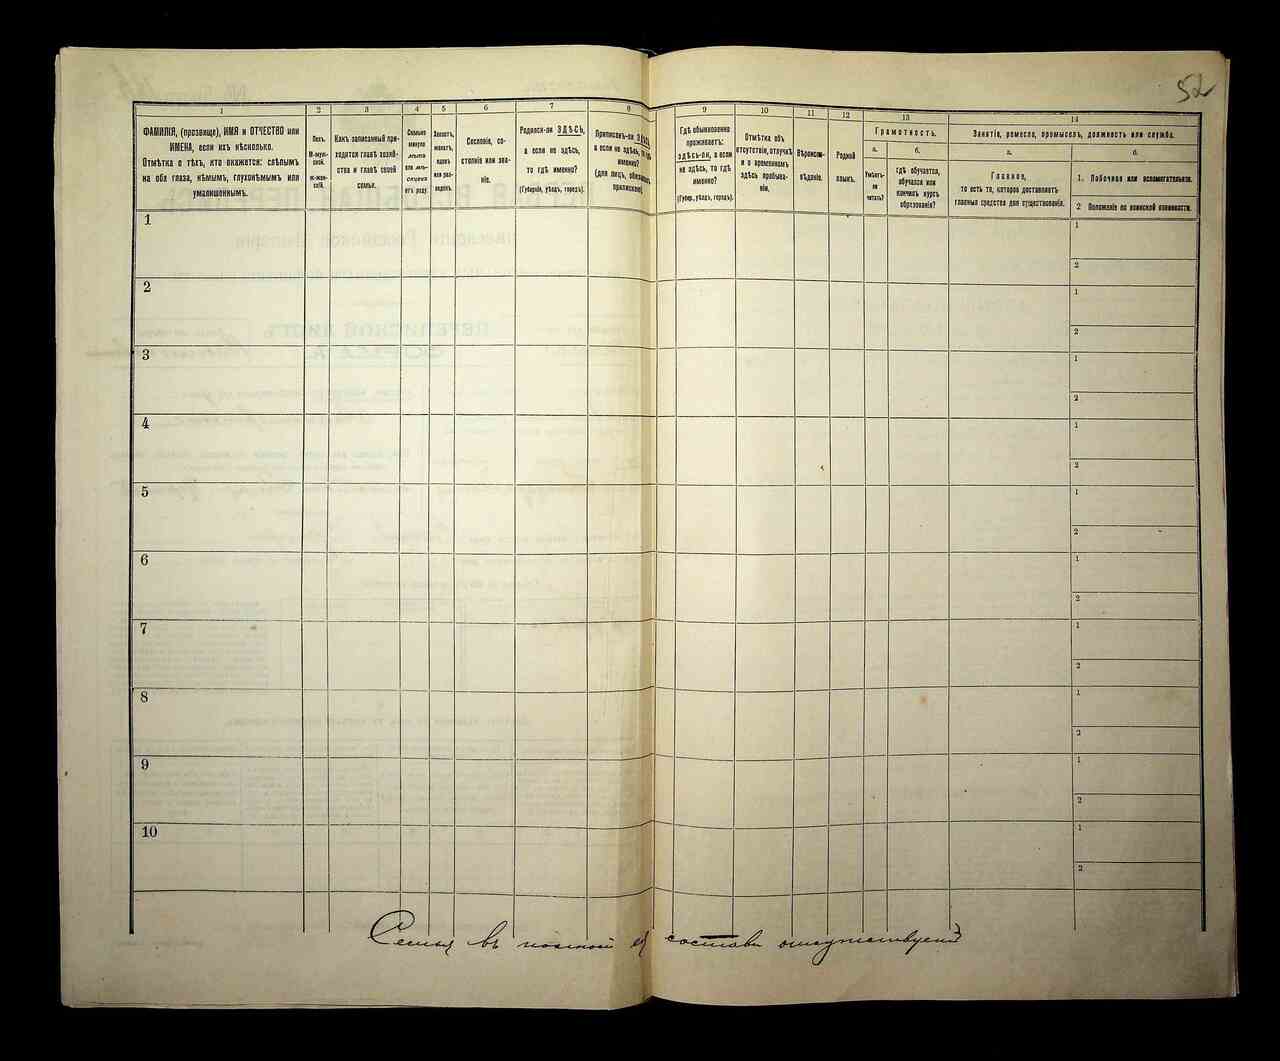 52
1 2 3 4 5 6 7 8 9 10 11 12 13 14
ФАМИЛІЯ, (прозвище), ИМЯ и ОТЧЕСТВО или
ИМЕНА, если ихъ нѣсколько.
Отмѣтка о тѣхъ, кто окажется: слѣпымъ
на оба глаза, нѣмымъ, глухонѣмымъ или
умалишеннымъ.
Полъ.
М-муж-
ской.
Ж-жен-
скій.
Какъ записанный при-
ходится главѣ хозяй-
ства и главѣ своей
семьи.
Сколько
минуло
лѣтъ
или мѣ-
сяцевъ
отъ роду.
Холостъ,
женатъ,
вдовъ
или раз-
веденъ.
Сословіе, со-
стояніе или зва-
ніе.
Родился-ли ЗДѢСЬ,
а если не здѣсь,
то гдѣ именно?
(Губернія, уѣздъ, городъ).
Приписанъ-ли
а если не здѣсь,
именно?
(для лицъ,
Гдѣ обыкновенно
проживаетъ:
здѣсь-ли, а если
не здѣсь, то гдѣ
именно?
(Губер., уѣздъ, городъ).
Отмѣтка объ
отсутствіи, отлучкѣ
и о временномъ
здѣсь пребыва-
ніи.
Вѣроиспо-
вѣданіе.
Родной
языкъ.
Грамотность.
а.
Умѣетъ-
ли
читать?
б.
гдѣ обучается,
обучался или
кончилъ курсъ
образованія?
Занятія, ремесло, промыселъ, должность или служба.
а.
Главное,
то есть то, которое доставляетъ
главныя средства для существованія.
б.
1. Побочное или вспомогательное.
2 Положеніе по воинской повинности.
1
1
2
2
1
2
3
1
2
4
1
2
5
1
2
6
1
2
7
1
2
8
1
2
9
1
2
10
1
2
Семья въ полномъ ея составѣ отсутствуетъ